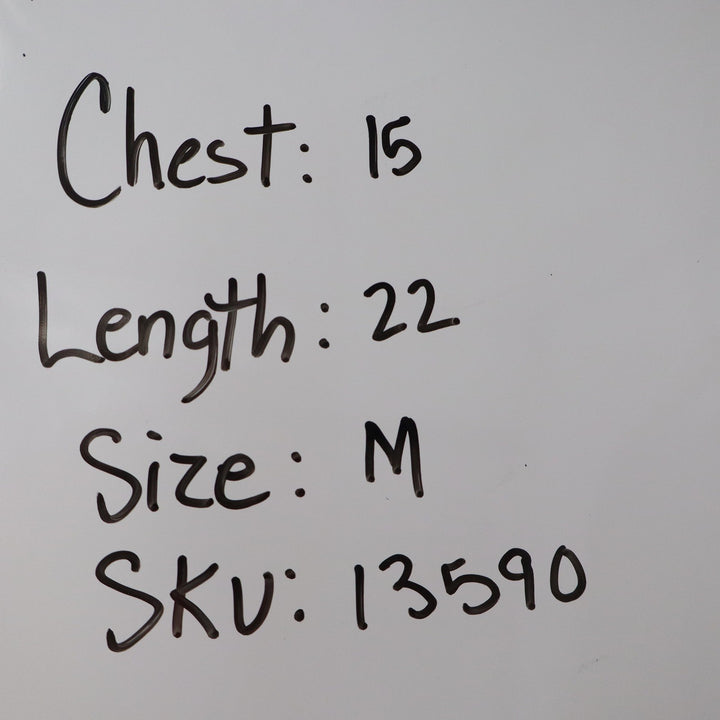 Chest: 15
Length: 22
Size: M
SKU: 13590